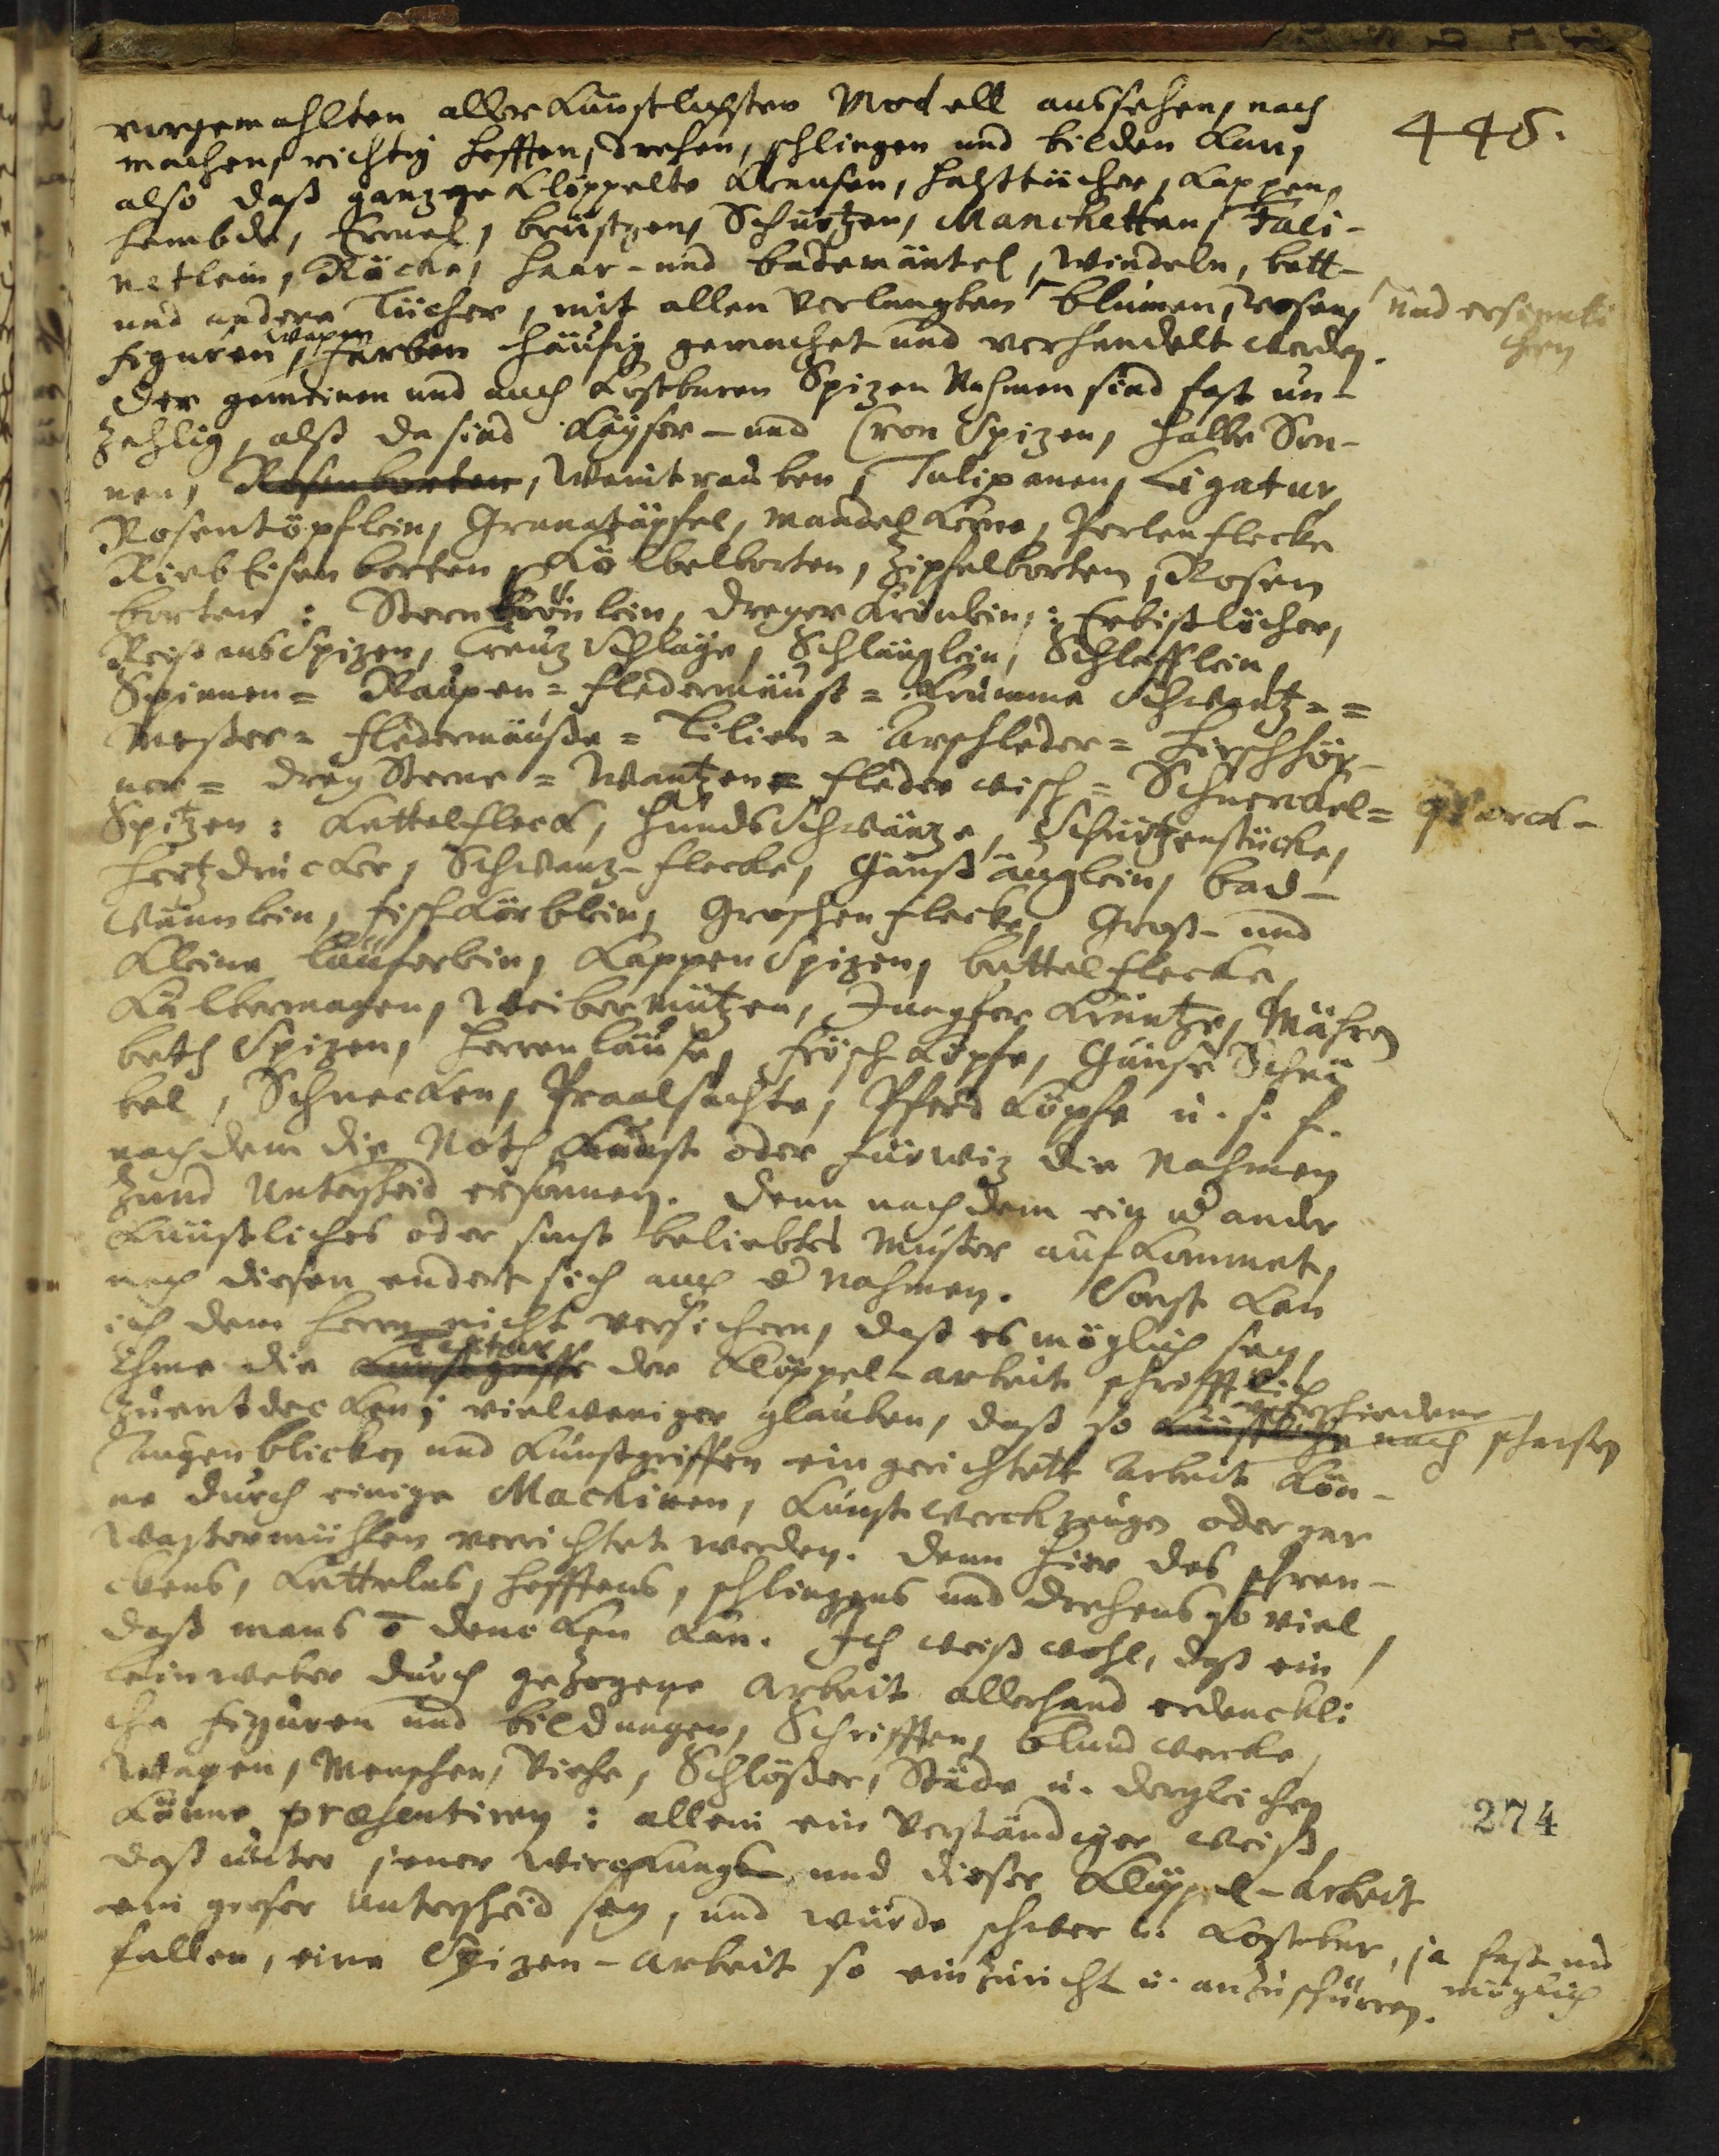 445.
vorgemahlten allerkünstlichsten Modell aussehen, nach
machen, richtig hefften, drehen, schlingen und bilden kan,
also daß ganz geklöppelte Krausen, Halßtücher, Kappen,
Hembde, Ermel, brüstgen, Schürtzen, Manchetten, Fali-
netlein, Röcke, Haar- und bademäntel, windeln, bett-
und andere Tücher, mit allen verlangten blumen, rosen, und ersinnli
chen
Figuren, wapen Farben häufig gemachet und verhandelt werden.
Der gemeinen und auch kostbaren Spizen Nahmen sind fast un-
zehlig, alß da sind Käyser- und Cron Spizen, halbe Son-
nen, Rosenborten, Weintrauben, Tulipanen, Ligatur,
Rosentöpflein, Granatäpfel, Mandelkerne, Perlenflecke
Riebeisenborten, Kölbelborten, Zipfelborten, Rosen
borten: Sternkrönlein, Dreyer krönlein: Erbißlöcher,
Reißaus Spizen, Creuzschläge, Schlänglein, Schleifflein,
Spinnen= Raupen= Fledermäuse= Krumme Schwantz==
Messer= Fledermäuße= Lilien= Arschleder= Hirschhör-
ner= drey Sterne= Wantzen= Flederwisch= Schnerckel=
Spitzen: Kettelfleck, Hundsschwäntze, Schützenstücke,
Hertzdrücker, Schwanz-flecke, Gänßäuglein, bad-
wännlein, Fischkörblein, Groschenflecke, Groß- und
Kleine läuferlein, Kappen Spizen, bettelflecke,
Kälbermagen, Weibermützen, Jungfer Kräntze, Mähren
beth Spizen, Herrenläuse, Fröschköpfe, Gänse Schnä
bel, Schnecken, Praalsachte, Pferdköpfe u. s. f.
nachdem die Noth Kunst oder Fürwiz die Nahmen
zum Unterscheid ersonnen. Denn nach dem ein u ander
Künstliches oder sonst beliebtes Muster aufkommet,
nach diesen endert sich auch d Nahmen. Sonst kan
ich dem Herrn nicht versichern, daß es möglich sey,
Ihme die Textur Kunstgriffe der Klöppel-arbeit schrifftlich
zuentdecken; vielweniger glauben, daß so künstliche nach verschiedene scharffen
Augenblicken und Kunstgriffen eingerichtete Arbeit kön-
ne durch einige Machinen, Kunstwerckzeugen oder gar
Wassermühlen verrichtet werden. Denn hier des schren-
ckens, kettelns, hefftens, schlingens und drehens so viel,
daß mans õ dencken kan. Ich weiß wohl, daß ein
leinweber durch gezogene Arbeit allerhand erdenckli:
che Figuren und bildungen, Schrifften, blumwercke,
Wapen, Menschen, Viehe, Schlößer, Städe u. dergleichen
könne præsentiren: allein ein Verständiger weiß,
274
daß unter jener Wirckungs- und dieser Klöppel-Arbeit
ein groser Unterscheid sey, und würde schwer u. kostbar, ja fast un
möglich
fallen, eine Spizen-arbeit so einzuricht u. anzuschüren.